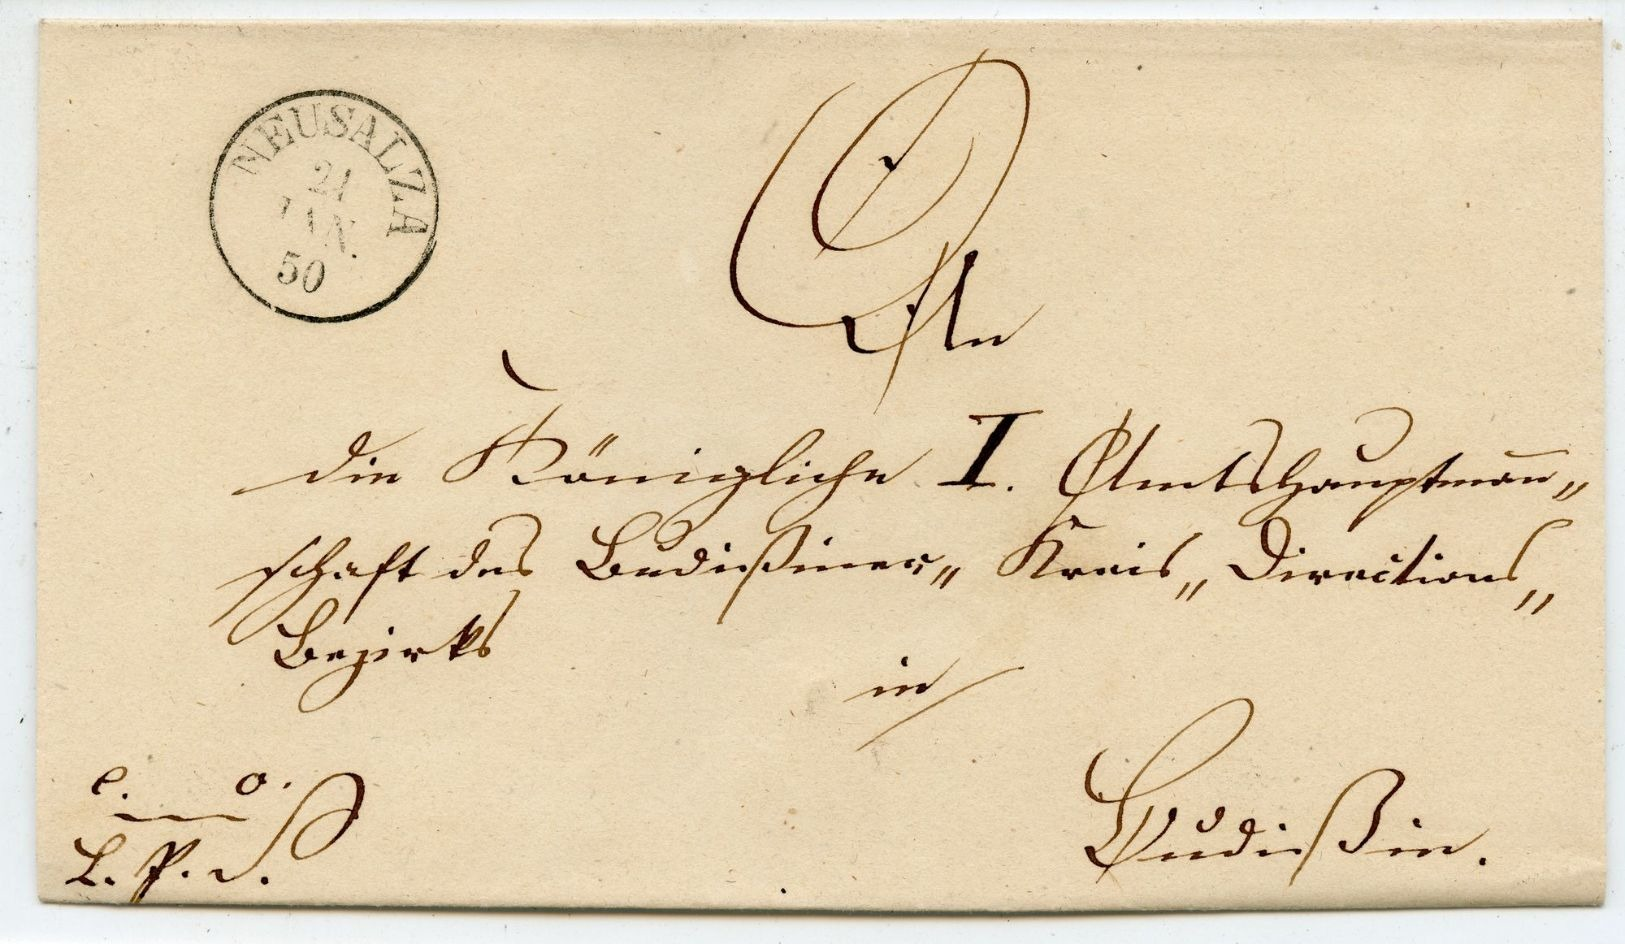 NEUSALZA
21
JAN.
50
An
die Königliche I. Amtshauptmañ„
schaft des Budißiner„ Kreis„ Directions„
Bezirks
in
Budißin.
e. o.
L. P. S.